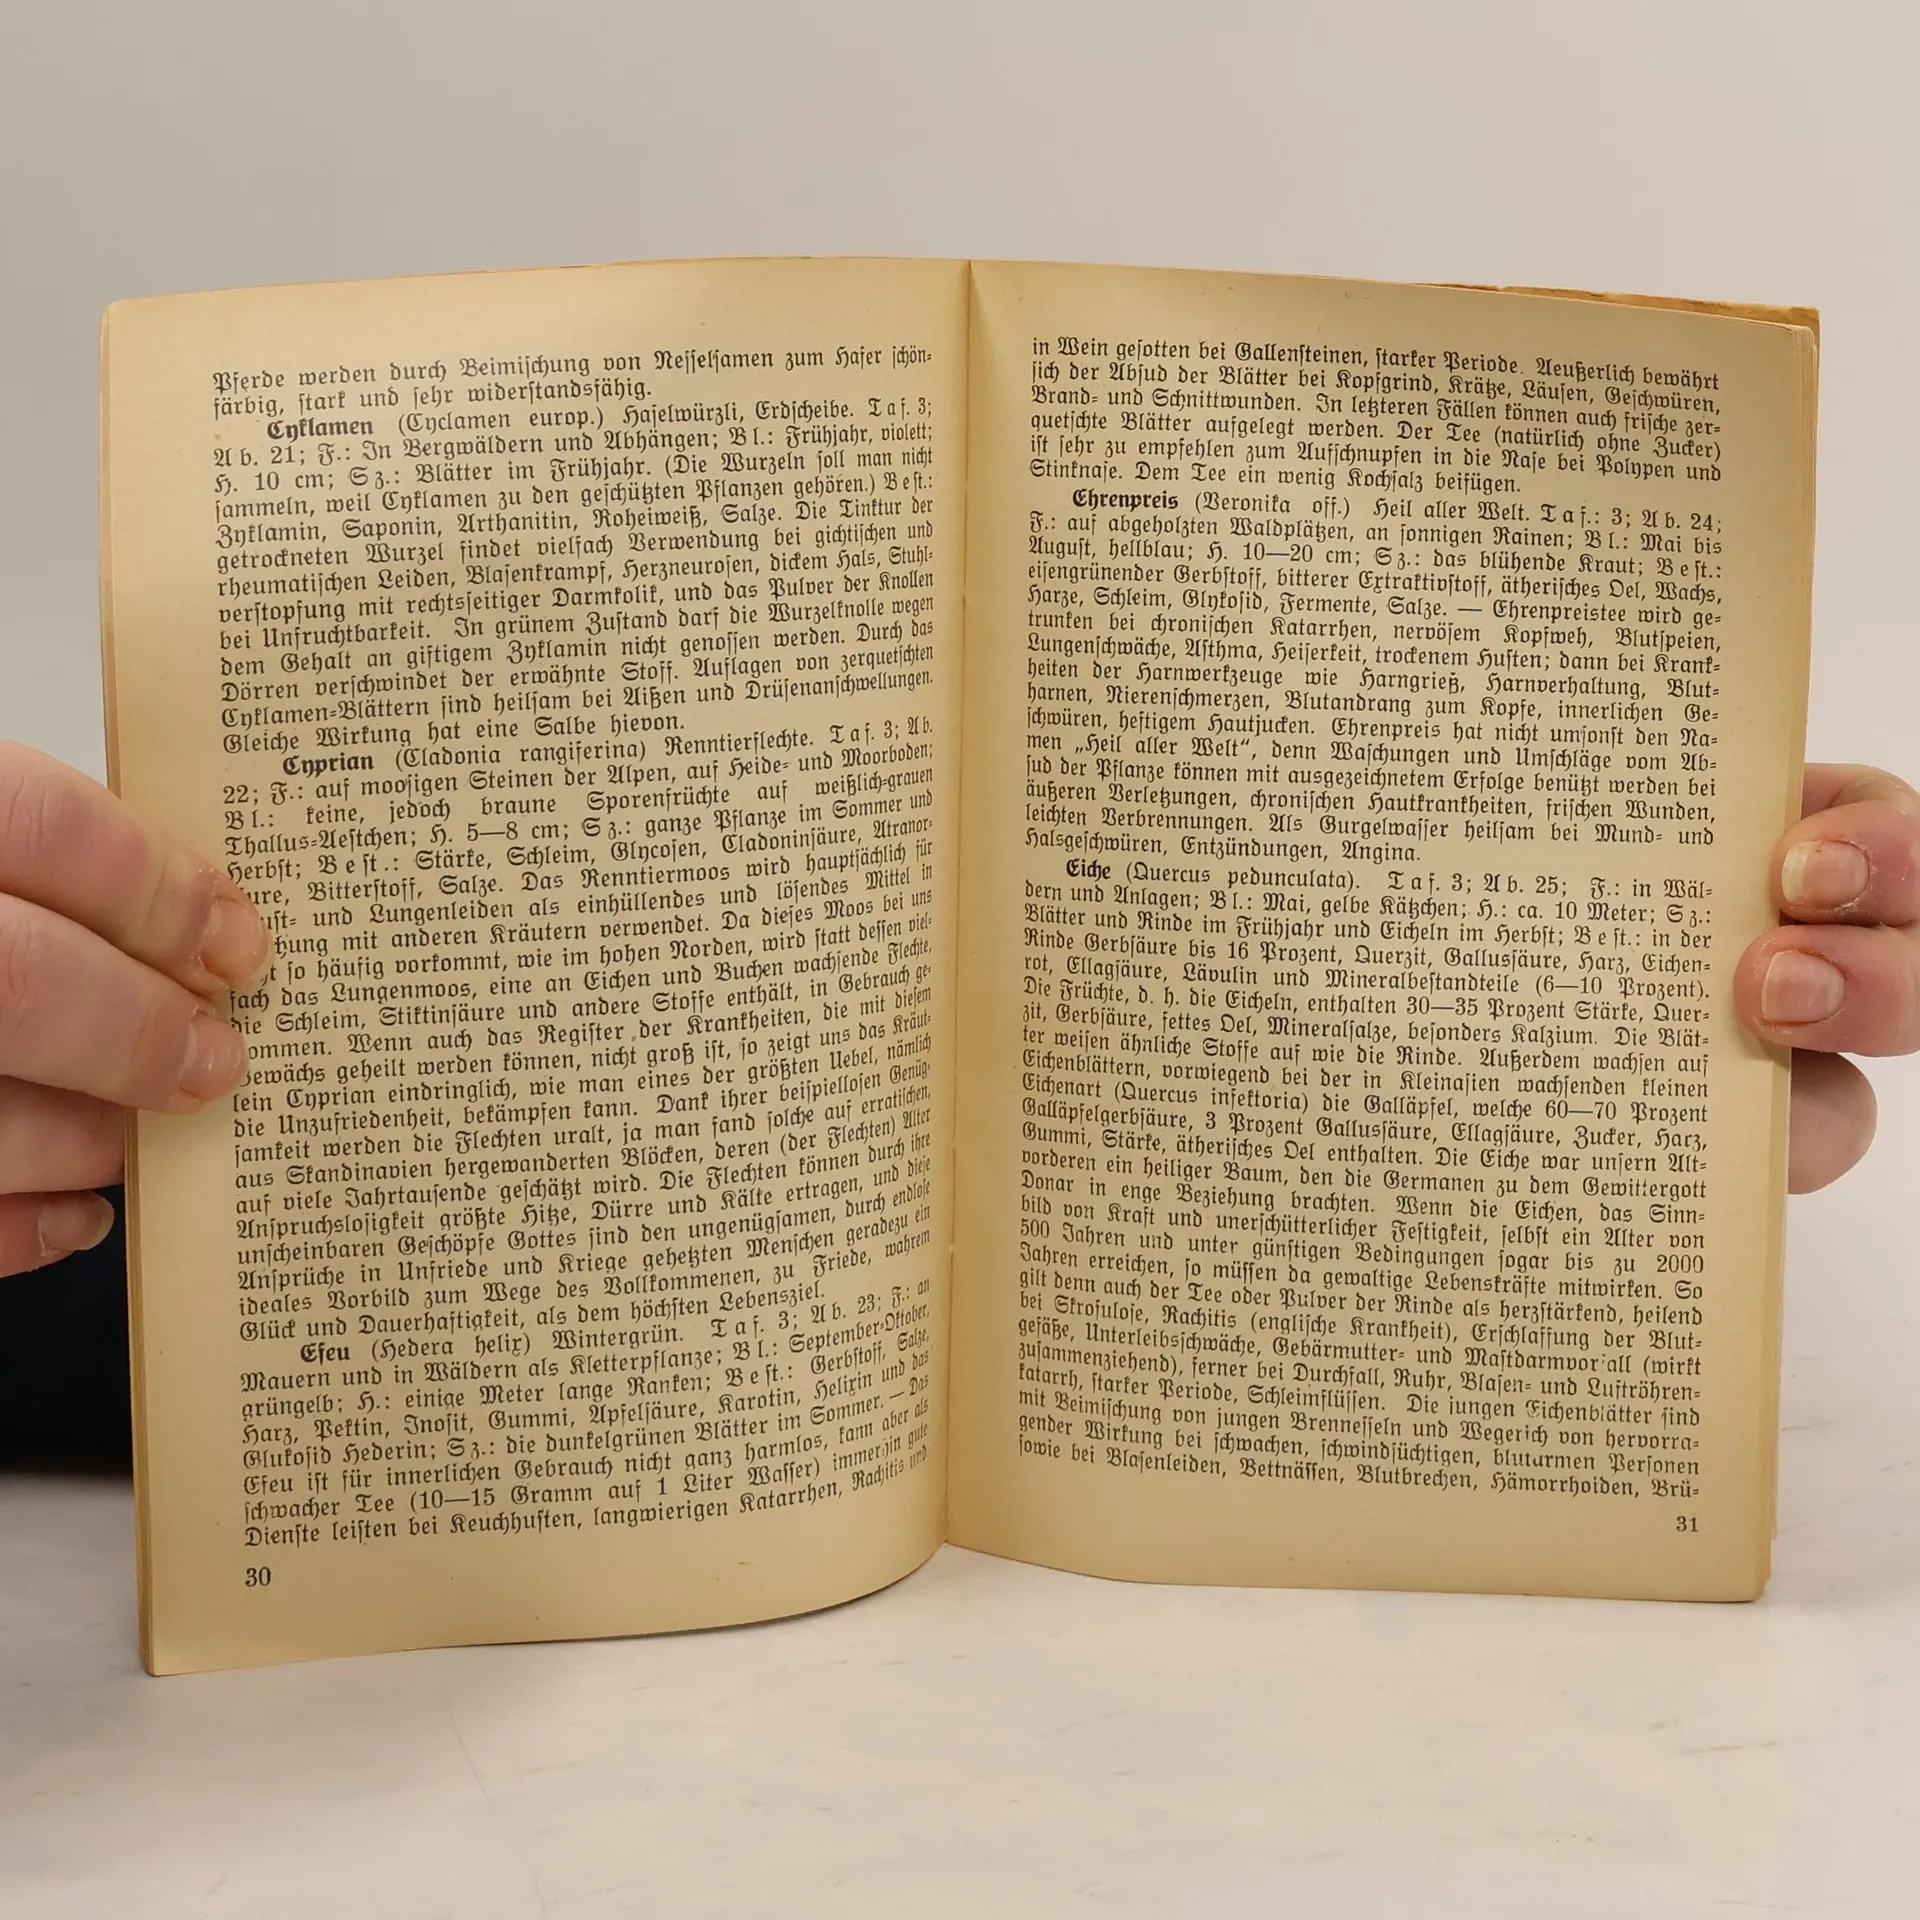 Pferde werden durch Beimischung von Nesselsamen zum Hafer schön-
färbig, stark und sehr widerstandsfähig.
Cyklamen (Cyclamen europ.) Haselwürzli, Erdscheibe. Taf. 3;
Ab. 21; F.: In Bergwäldern und Abhängen; Bl.: Frühjahr, violett;
H. 10 cm; Sz.: Blätter im Frühjahr. (Die Wurzeln soll man nicht
sammeln, weil Cyklamen zu den geschützten Pflanzen gehören.) Best.:
Zyklamin, Saponin, Arthanitin, Roheiweiß, Salze. Die Tinktur der
getrockneten Wurzel findet vielfach Verwendung bei gichtischen und
rheumatischen Leiden, Blasenkrampf, Herzneurosen, dickem Hals, Stuhl-
verstopfung mit rechtsseitiger Darmkolik, und das Pulver der Knollen
bei Unfruchtbarkeit. In grünem Zustand darf die Wurzelknolle wegen
dem Gehalt an giftigem Zyklamin nicht genossen werden. Durch das
Dörren verschwindet der erwähnte Stoff. Auflagen von zerquetschten
Cyklamen-Blättern sind heilsam bei Aißen und Drüsenanschwellungen.
Gleiche Wirkung hat eine Salbe hievon.
Cyprian (Cladonia rangiferina) Renntierflechte. Taf. 3; Ab.
22; F.: auf moosigen Steinen der Alpen, auf Heide- und Moorboden;
Bl.: keine, jedoch braune Sporenfrüchte auf weißlich-grauen
Thallus-Aestchen; H. 5—8 cm; Sz.: ganze Pflanze im Sommer und
Herbst; Best.: Stärke, Schleim, Glycosen, Cladoninsäure, Atranor-
ure, Bitterstoff, Salze. Das Renntiermoos wird hauptsächlich für
ust- und Lungenleiden als einhüllendes und lösendes Mittel in
hung mit anderen Kräutern verwendet. Da dieses Moos bei uns
t so häufig vorkommt, wie im hohen Norden, wird statt dessen viel-
fach das Lungenmoos, eine an Eichen und Buchen wachsende Flechte,
die Schleim, Stiktinsäure und andere Stoffe enthält, in Gebrauch ge-
ommen. Wenn auch das Register der Krankheiten, die mit diesem
Gewächs geheilt werden können, nicht groß ist, so zeigt uns das Kräut-
lein Cyprian eindringlich, wie man eines der größten Uebel, nämlich
die Unzufriedenheit, bekämpfen kann. Dank ihrer beispiellosen Genüg-
samkeit werden die Flechten uralt, ja man fand solche auf erratischen,
aus Skandinavien hergewanderten Blöcken, deren (der Flechten) Alter
auf viele Jahrtausende geschätzt wird. Die Flechten können durch ihre
Anspruchslosigkeit größte Hitze, Dürre und Kälte ertragen, und diese
unscheinbaren Geschöpfe Gottes sind den ungenügsamen, durch endlose
Ansprüche in Unfriede und Kriege gehetzten Menschen geradezu ein
ideales Vorbild zum Wege des Vollkommenen, zu Friede, wahrem
Glück und Dauerhaftigkeit, als dem höchsten Lebensziel.
Efeu (Hedera helix) Wintergrün. Taf. 3; Ab. 23; F.: an
Mauern und in Wäldern als Kletterpflanze; Bl.: September-Oktober,
grüngelb; H.: einige Meter lange Ranken; Best.: Gerbstoff, Salze,
Harz, Pektin, Inosit, Gummi, Apfelsäure, Karotin, Helixin und das
Glukosid Hederin; Sz.: die dunkelgrünen Blätter im Sommer. — Das
Efeu ist für innerlichen Gebrauch nicht ganz harmlos, kann aber als
schwacher Tee (10—15 Gramm auf 1 Liter Wasser) immerhin gute
Dienste leisten bei Keuchhusten, langwierigen Katarrhen, Rachitis und
30
in Wein gesotten bei Gallensteinen, starker Periode. Aeußerlich bewährt
sich der Absud der Blätter bei Kopfgrind, Krätze, Läusen, Geschwüren,
Brand- und Schnittwunden. In letzteren Fällen können auch frische zer-
quetschte Blätter aufgelegt werden. Der Tee (natürlich ohne Zucker)
ist sehr zu empfehlen zum Aufschnupfen in die Nase bei Polypen und
Stinknase. Dem Tee ein wenig Kochsalz beifügen.
Ehrenpreis (Veronika off.) Heil aller Welt. Taf.: 3; Ab. 24;
F.: auf abgeholzten Waldplätzen, an sonnigen Rainen; Bl.: Mai bis
August, hellblau; H. 10—20 cm; Sz.: das blühende Kraut; Best.:
eisengrünender Gerbstoff, bitterer Extraktivstoff, ätherisches Oel, Wachs,
Harze, Schleim, Glykosid, Fermente, Salze. — Ehrenpreistee wird ge-
trunken bei chronischen Katarrhen, nervösem Kopfweh, Blutspeien,
Lungenschwäche, Asthma, Heiserkeit, trockenem Husten; dann bei Krank-
heiten der Harnwerkzeuge wie Harngrieß, Harnverhaltung, Blut-
harnen, Nierenschmerzen, Blutandrang zum Kopfe, innerlichen Ge-
schwüren, heftigem Hautjucken. Ehrenpreis hat nicht umsonst den Na-
men „Heil aller Welt“, denn Waschungen und Umschläge vom Ab-
sud der Pflanze können mit ausgezeichnetem Erfolge benützt werden bei
äußeren Verletzungen, chronischen Hautkrankheiten, frischen Wunden,
leichten Verbrennungen. Als Gurgelwasser heilsam bei Mund- und
Halsgeschwüren, Entzündungen, Angina.
Eiche (Quercus pedunculata). Taf. 3; Ab. 25; F.: in Wäl-
dern und Anlagen; Bl.: Mai, gelbe Kätzchen; H.: ca. 10 Meter; Sz.:
Blätter und Rinde im Frühjahr und Eicheln im Herbst; Best.: in der
Rinde Gerbsäure bis 16 Prozent, Querzit, Gallusäure, Harz, Eichen-
rot, Ellagsäure, Lävulin und Mineralbestandteile (6—10 Prozent).
Die Früchte, d. h. die Eicheln, enthalten 30—35 Prozent Stärke, Quer-
zit, Gerbsäure, fettes Oel, Mineralsalze, besonders Kalzium. Die Blät-
ter weisen ähnliche Stoffe auf wie die Rinde. Außerdem wachsen auf
Eichenblättern, vorwiegend bei der in Kleinasien wachsenden kleinen
Eichenart (Quercus infektoria) die Galläpfel, welche 60—70 Prozent
Galläpfelgerbsäure, 3 Prozent Gallussäure, Ellagsäure, Zucker, Harz,
Gummi, Stärke, ätherisches Oel enthalten. Die Eiche war unsern Alt-
vorderen ein heiliger Baum, den die Germanen zu dem Gewittergott
Donar in enge Beziehung brachten. Wenn die Eichen, das Sinn-
bild von Kraft und unerschütterlicher Festigkeit, selbst ein Alter von
500 Jahren und unter günstigen Bedingungen sogar bis zu 2000
Jahren erreichen, so müssen da gewaltige Lebenskräfte mitwirken. So
gilt denn auch der Tee oder Pulver der Rinde als herzstärkend, heilend
bei Skrofulose, Rachitis (englische Krankheit), Erschlaffung der Blut-
gefäße, Unterleibsschwäche, Gebärmutter- und Mastdarmvorfall (wirkt
zusammenziehend), ferner bei Durchfall, Ruhr, Blasen- und Luftröhren-
katarrh, starker Periode, Schleimflüssen. Die jungen Eichenblätter sind
mit Beimischung von jungen Brennesseln und Wegerich von hervorra-
gender Wirkung bei schwachen, schwindsüchtigen, blutarmen Personen
sowie bei Blasenleiden, Bettnässen, Blutbrechen, Hämorrhoiden, Brü-
31